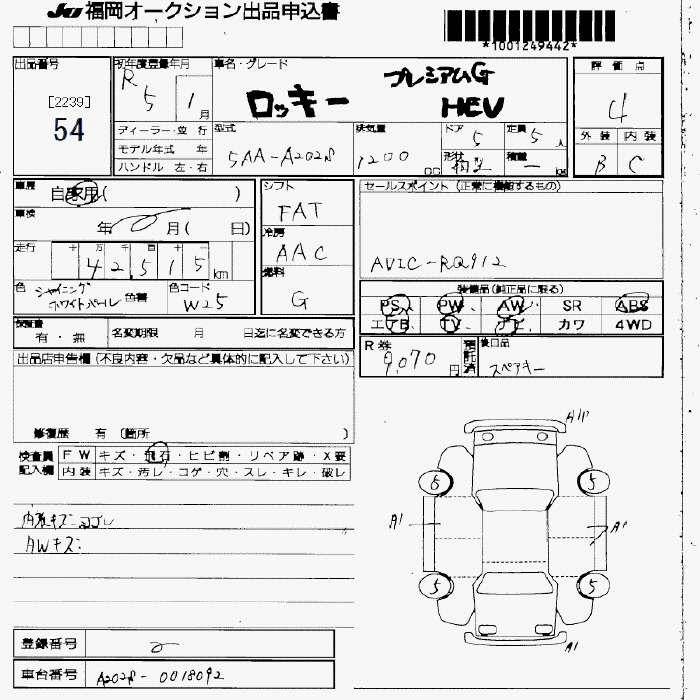 JU 福岡オークション出品申込書
*1001249442*
出品番号
[2239]
54
初年度登録年月
R 5 1 月
車名・グレード
プレミアムG
ロッキー HEV
評価点
4
外装 内装
B C
ディーラー・並行
モデル年式 年
ハンドル 左・右
型式
5AA-A202S
排気量
1200 CC
ドア
5
形状
定員
5 人
積載
- kg
車歴
自家用( )
車検
年 月( 日)
走行
十 万 千 百 十
4 2 5 1 5 km
色
シャイニング
ホワイトパール 色番
色コード
W25
シフト
FAT
冷房
AAC
燃料
G
セールスポイント (正常に機能するもの)
AVIC-RQ912
装備品(純正品に限る)
PS PW AW SR ABS
エアB TV ナビ カワ 4WD
保証書
有・無
名変期限 月 日迄に名変できる方
R券
9,070 円
預託済
後日品
スペアキー
出品店申告欄(不良内容・欠品など具体的に記入して下さい)
修復歴 有 (箇所 )
検査員
記入欄
FW キズ・飛石・ヒビ割・リペア跡・X要
内装 キズ・汚レ・コゲ・穴・スレ・キレ・破レ
内装キズ ヨゴレ
AWキズ
A1P
6 5
A1 A1
5 5
A1
登録番号
車台番号 A202S-0018092